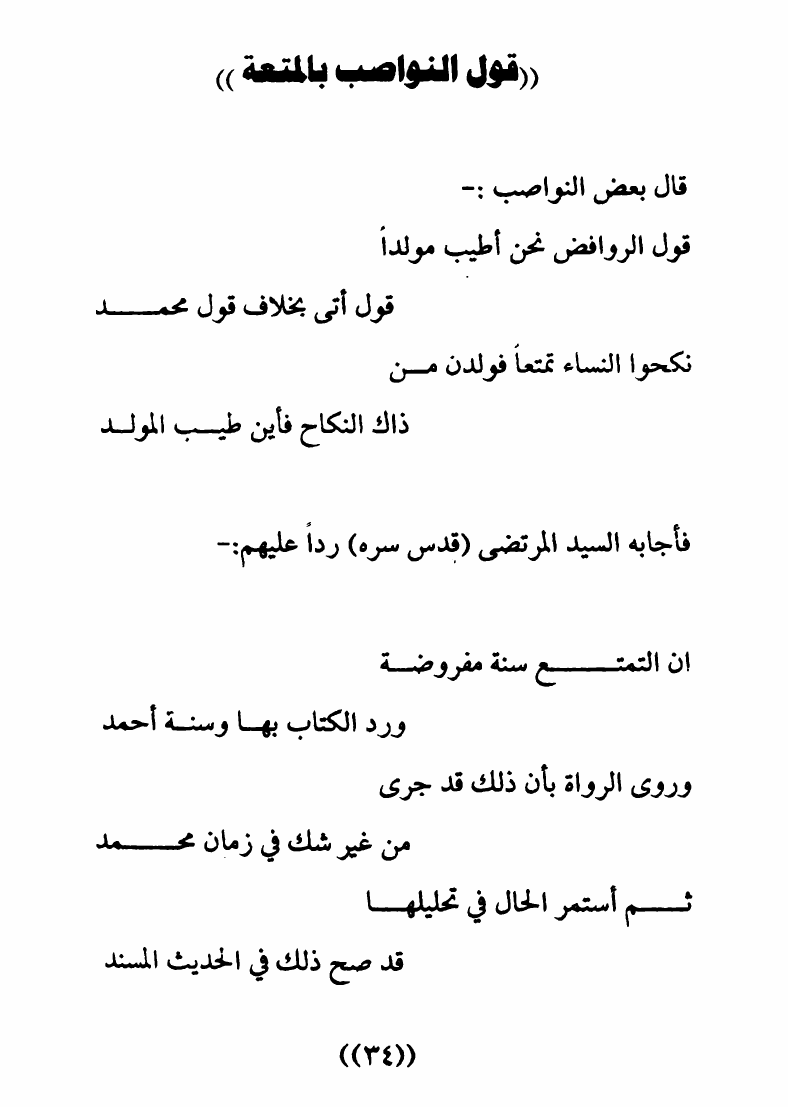 ((قول النواصب بالمتعة))
قال بعض النواصب :-
قول الروافض نحن أطيب مولداً
قول أتى بخلاف قول محمــــد
نكحوا النساء تمتعاً فولدن مــن
ذاك النكاح فأين طيــب المولــد
فأجابه السيد المرتضى (قدس سره) رداً عليهم:-
ان التمتــــــع سنة مفروضــة
ورد الكتاب بهــا وسنــة أحمد
وروى الرواة بأن ذلك قد جرى
من غير شك في زمان محــــمد
ثــــم أستمر الحال في تحليلهــا
قد صح ذلك في الحديث المسند
((٣٤))